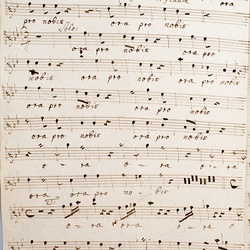 pro nobis
Solo.
ora pro nobis
nobis ora pro nobis
ora pro nobis ora pro
ora pro nobis ora pro nobis
o - ra o - ra o -
ora ora pro no - bis
T.
o - ra ora o - ra
ora pro nobis ora